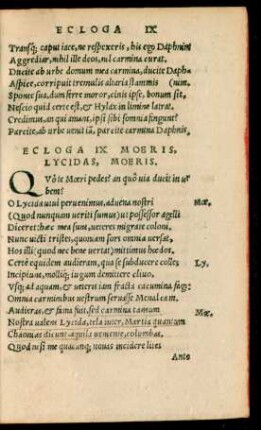 ECLOGA IX
Transq; caput iace, ne respexeris, his ego Daphnim
Aggrediar, nihil ille deos, nil carmina curat.
Ducite ab urbe domum mea carmina, ducite Daph-
Aspice, corripuit tremulis altaria flammis (nim.
Sponte sua, dum ferre moror, cinis ipse, bonum sit,
Nescio quid certe est, et Hylax in limine latrat.
Credimus, an qui amant, ipsi sibi somnia fingunt?
Parcite, ab urbe uenit iã, parcite carmina Daphnis.
ECLOGA IX MOERIS,
LYCIDAS, MOERIS,
QVó te Mœri pedes? an quò uia ducit in ur
bem?
O Lycida uiui peruenimus, aduena nostri Mœ.
(Quod nunquam ueriti sumus) ut possessor agelli
Diceret: hæc mea sunt, ueteres migrate coloni.
Nunc uicti tristes, quoniam sors omnia uersat,
Hos illi (quod nec bene uertat) mittimus hœdos.
Certe equidem audieram, qua se subducere colles Ly.
Incipiunt, molliq; iugum demittere cliuo,
Vsq; ad aquam, et ueteris iam fracta cacumina fagi:
Omnia carminibus uestrum seruasse Menalcam.
Audieras, et fama fuit, sed carmina tantum Mœ.
Nostra ualent Lycida, tela inter Martia quantum
Chaonias dicunt aquila ueniente columbas.
Quod nisi me quacunq; nouas incidere lites
Ante